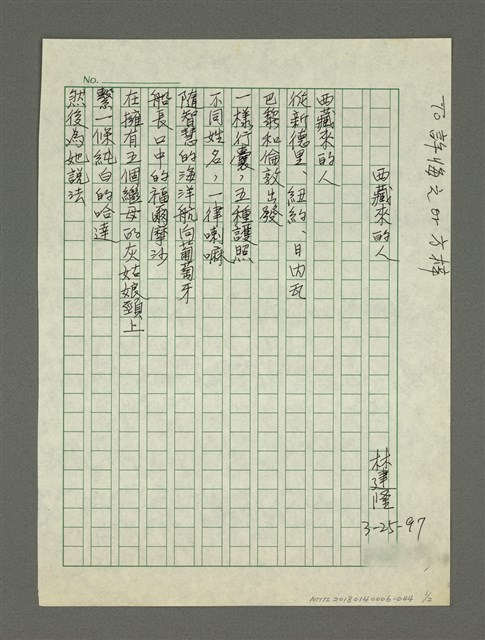 No.
To 許悔之 or 方梓
西藏來的人
林建隆
3-25-97
西藏來的人
從新德里、紐約、日內瓦
巴黎和倫敦出發
一樣行囊,五種護照
不同姓名,一律喇嘛
隨智慧的海洋航向葡萄牙
船長口中的福爾摩沙
在擁有五個繼母的灰姑娘頸上
繫一條純白的哈達
然後為她說法
NMTL20180140006-044
1/2